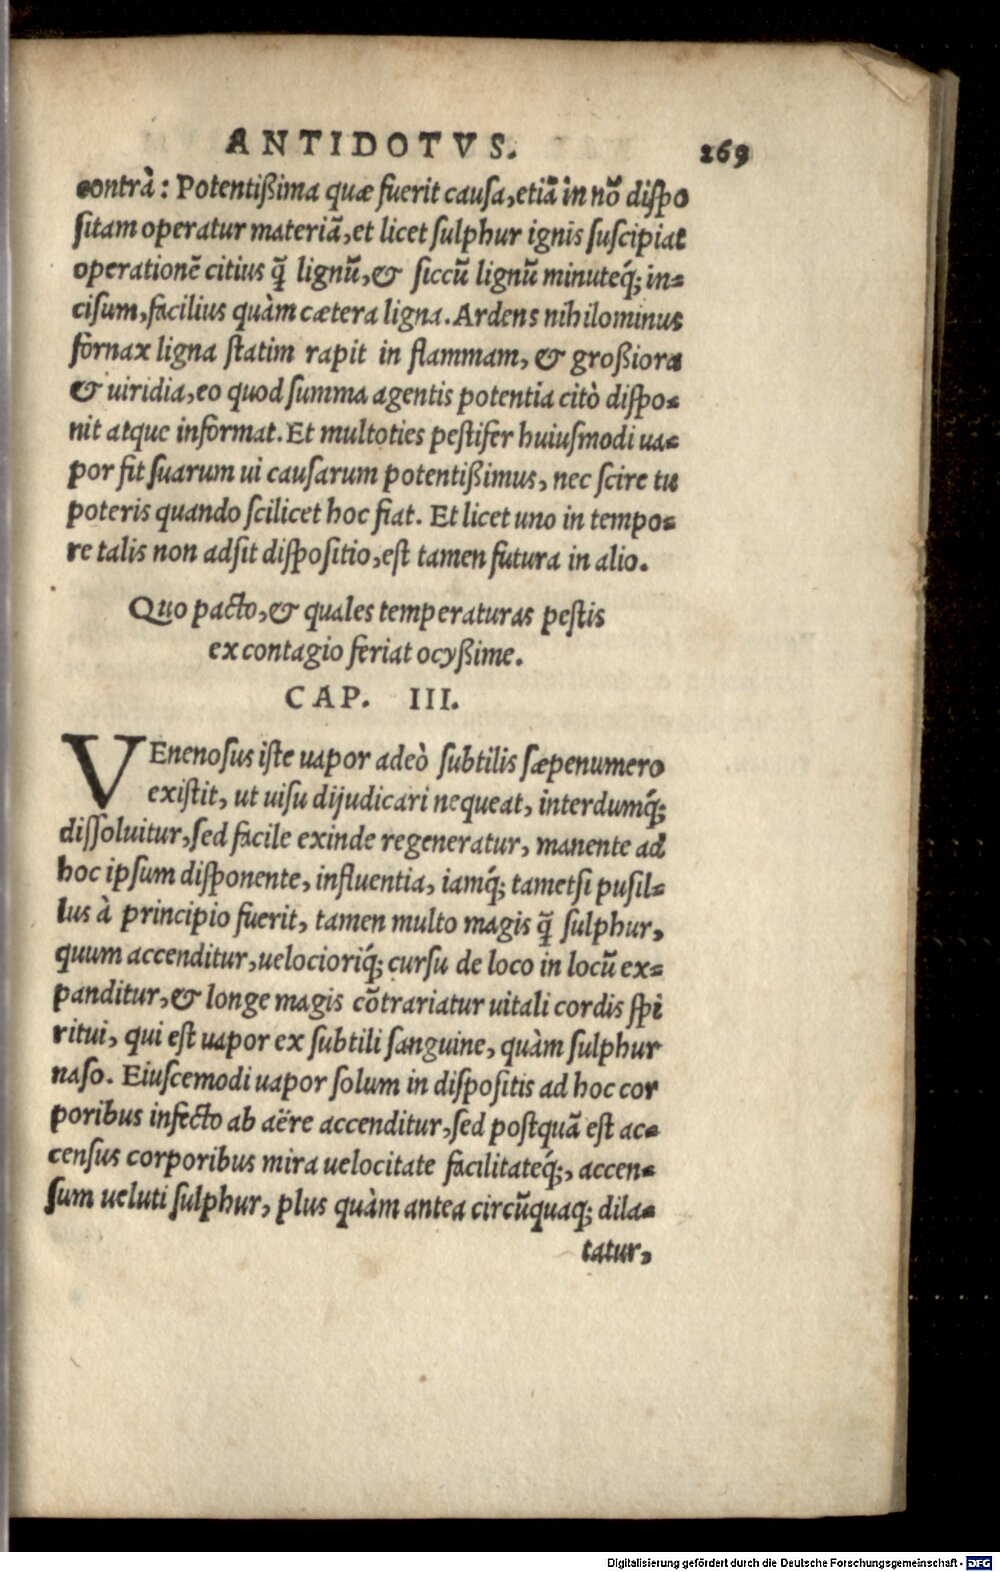 ANTIDOTVS. 269
contrà: Potentißima quæ fuerit causa, etiã in nõ dispo
sitam operatur materiã, et licet sulphur ignis suscipiat
operationẽ citius q̃ lignũ, & siccũ lignũ minuteq́; in=
cisum, facilius quàm cætera ligna. Ardens nihilominus
fornax ligna statim rapit in flammam, & großiora
& uiridia, eo quod summa agentis potentia citò dispo=
nit atque informat. Et multoties pestifer huiusmodi ua=
por fit suarum ui causarum potentißimus, nec scire tu
poteris quando scilicet hoc fiat. Et licet uno in tempo=
re talis non adsit dispositio, est tamen futura in alio.
Quo pacto, & quales temperaturas pestis
ex contagio feriat ocyßime.
CAP. III.
VEnenosus iste uapor adeò subtilis sæpenumero
existit, ut uisu dijudicari nequeat, interdumq́;
dissoluitur, sed facile exinde regeneratur, manente ad
hoc ipsum disponente, influentia, iamq́; tametsi pusil=
lus à principio fuerit, tamen multo magis q̃ sulphur,
quum accenditur, uelocioriq́; cursu de loco in locũ ex=
panditur, & longe magis cõtrariatur uitali cordis spi
ritui, qui est uapor ex subtili sanguine, quàm sulphur
naso. Eiuscemodi uapor solum in dispositis ad hoc cor
poribus infecto ab aëre accenditur, sed postquã est ac=
census corporibus mira uelocitate facilitateq́;, accen=
sum ueluti sulphur, plus quàm antea circũquaq; dila=
tatur,
Digitalisierung gefördert durch die Deutsche Forschungsgemeinschaft - DFG